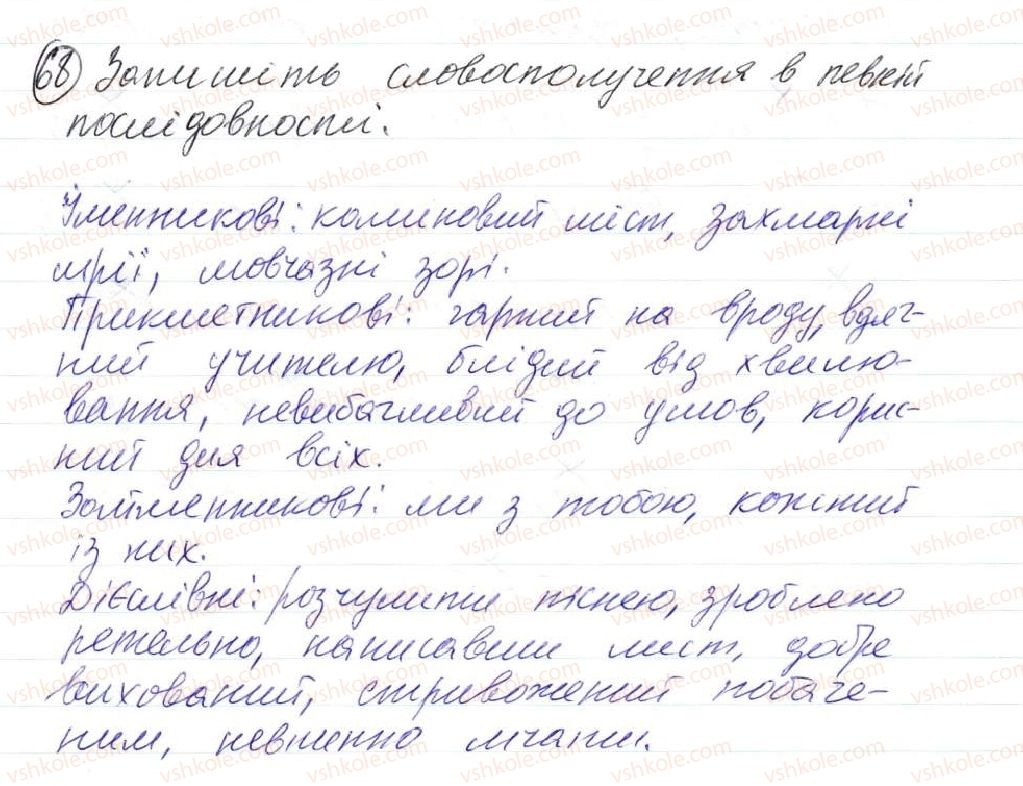 68 Запишіть словосполучення в певній
послідовності.
Іменникові: калиновий міст, захмарні
мрії, мовчазні зорі.
Прикметникові: гарний на вроду, вдяч-
ний учителю, блідий від хвилю-
вання, невибагливий до умов, корис-
ний для всіх.
Займенникові: ми з тобою, кожний
із них.
Дієслівні: розчулити піснею, зроблено
ретельно, написавши лист, добре
вихований, стривожений побаче-
ним, невпинно мчати.
vshkole.com